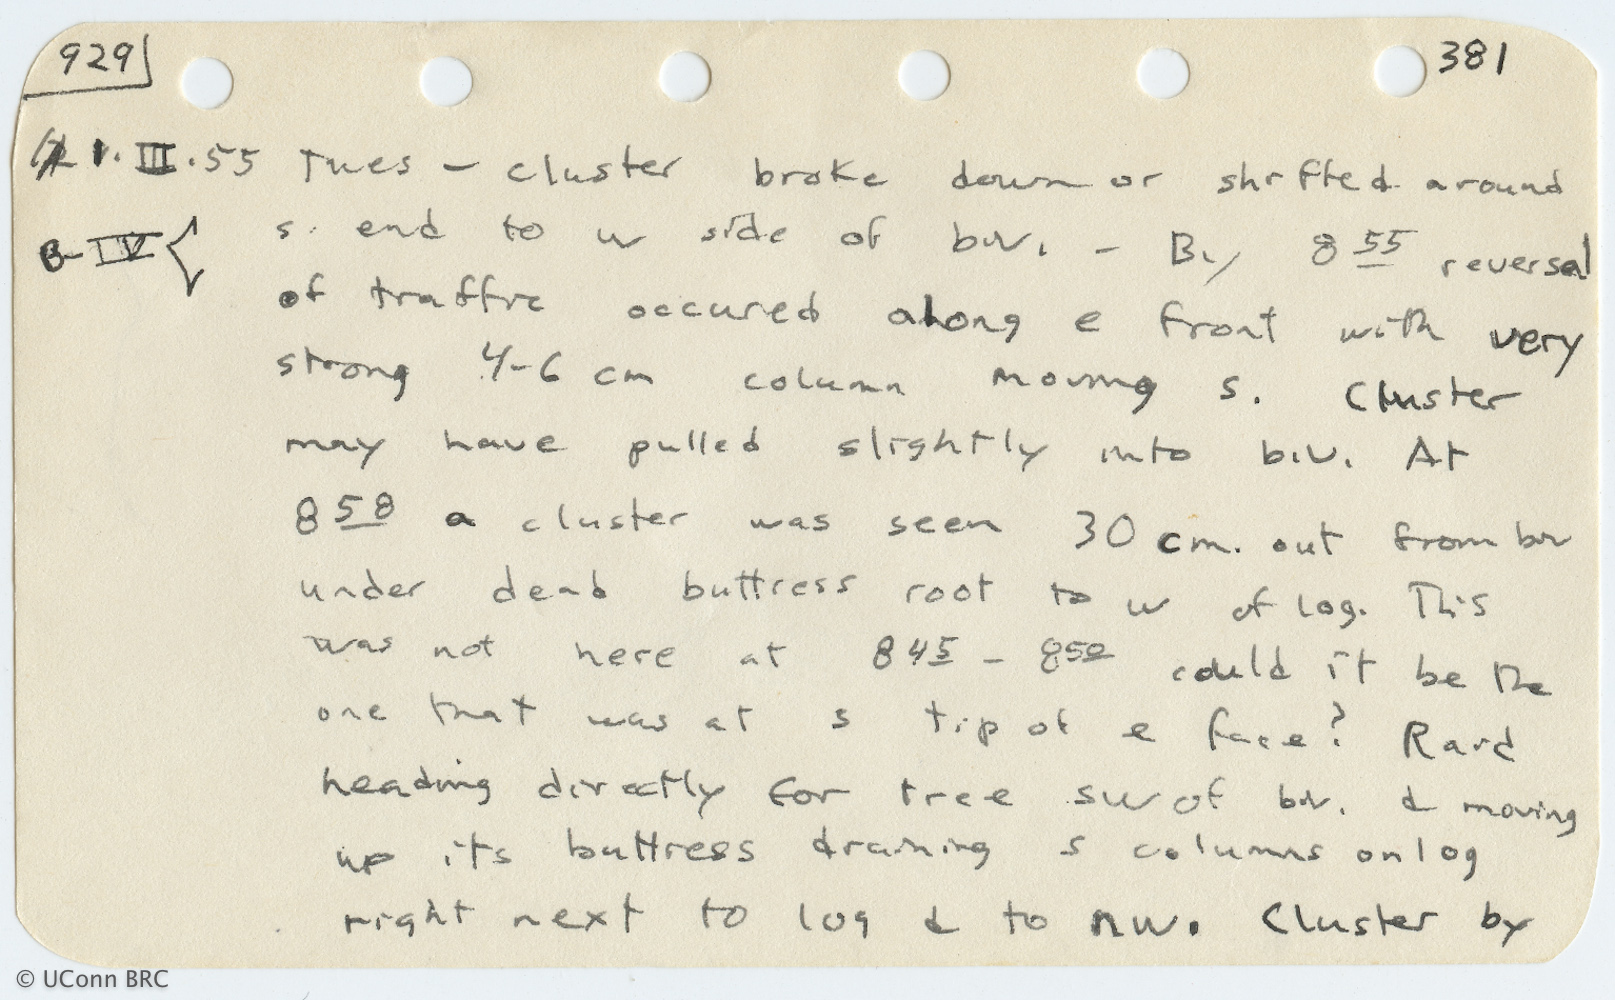 929 381
1.III.55 Tues - cluster broke down or shifted around
B-IV s. end to w side of biv. - By 8 55 reversal
of traffic occured along e front with very
strong 4-6 cm column moving s. Cluster
may have pulled slightly into biv. At
8 58 a cluster was seen 30 cm. out from biv
under dead buttress root to w of log. This
was not here at 8 45 - 8 50 could it be the
one that was at s tip of e face? Raid
heading directly for tree sw of biv. & moving
up its buttress draining s columns on log
right next to log & to nw. Cluster by
© UConn BRC